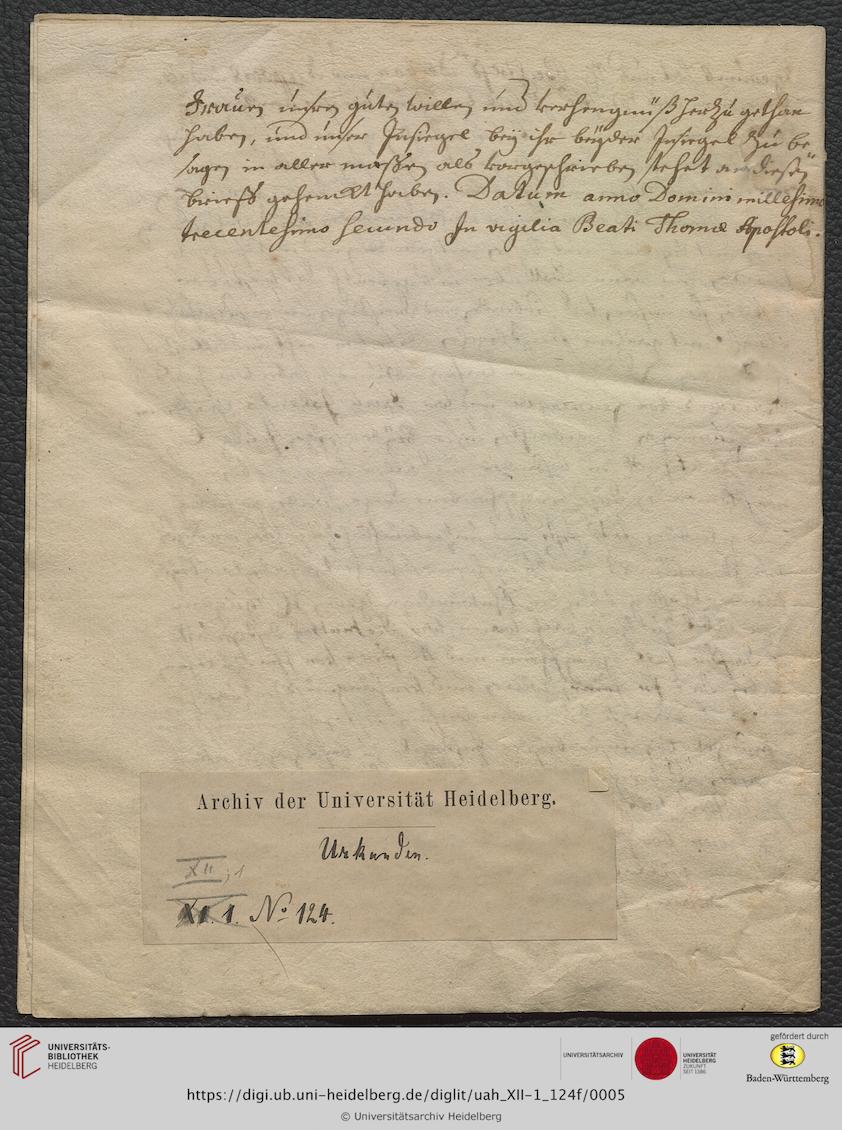 Frauen unsren guten willen und verhengnüß herzu gethan
haben, und unser Insiegel bey ihr beyder Insiegel zu be
sagen in aller massen als vorgeschrieben stehet an diesen
Brieff gehenckt haben. Datum anno Domini millesimo
trecentesimo secundo In vigilia Beati Thomæ Apostoli.
Archiv der Universität Heidelberg.
Urkunden.
XII, 1
XI. 1. No 124.
UNIVERSITÄTS-
BIBLIOTHEK
HEIDELBERG
UNIVERSITÄTSARCHIV
UNIVERSITÄT
HEIDELBERG
ZUKUNFT
SEIT 1386
gefördert durch
Baden-Württemberg
https://digi.ub.uni-heidelberg.de/diglit/uah_XII-1_124f/0005
© Universitätsarchiv Heidelberg